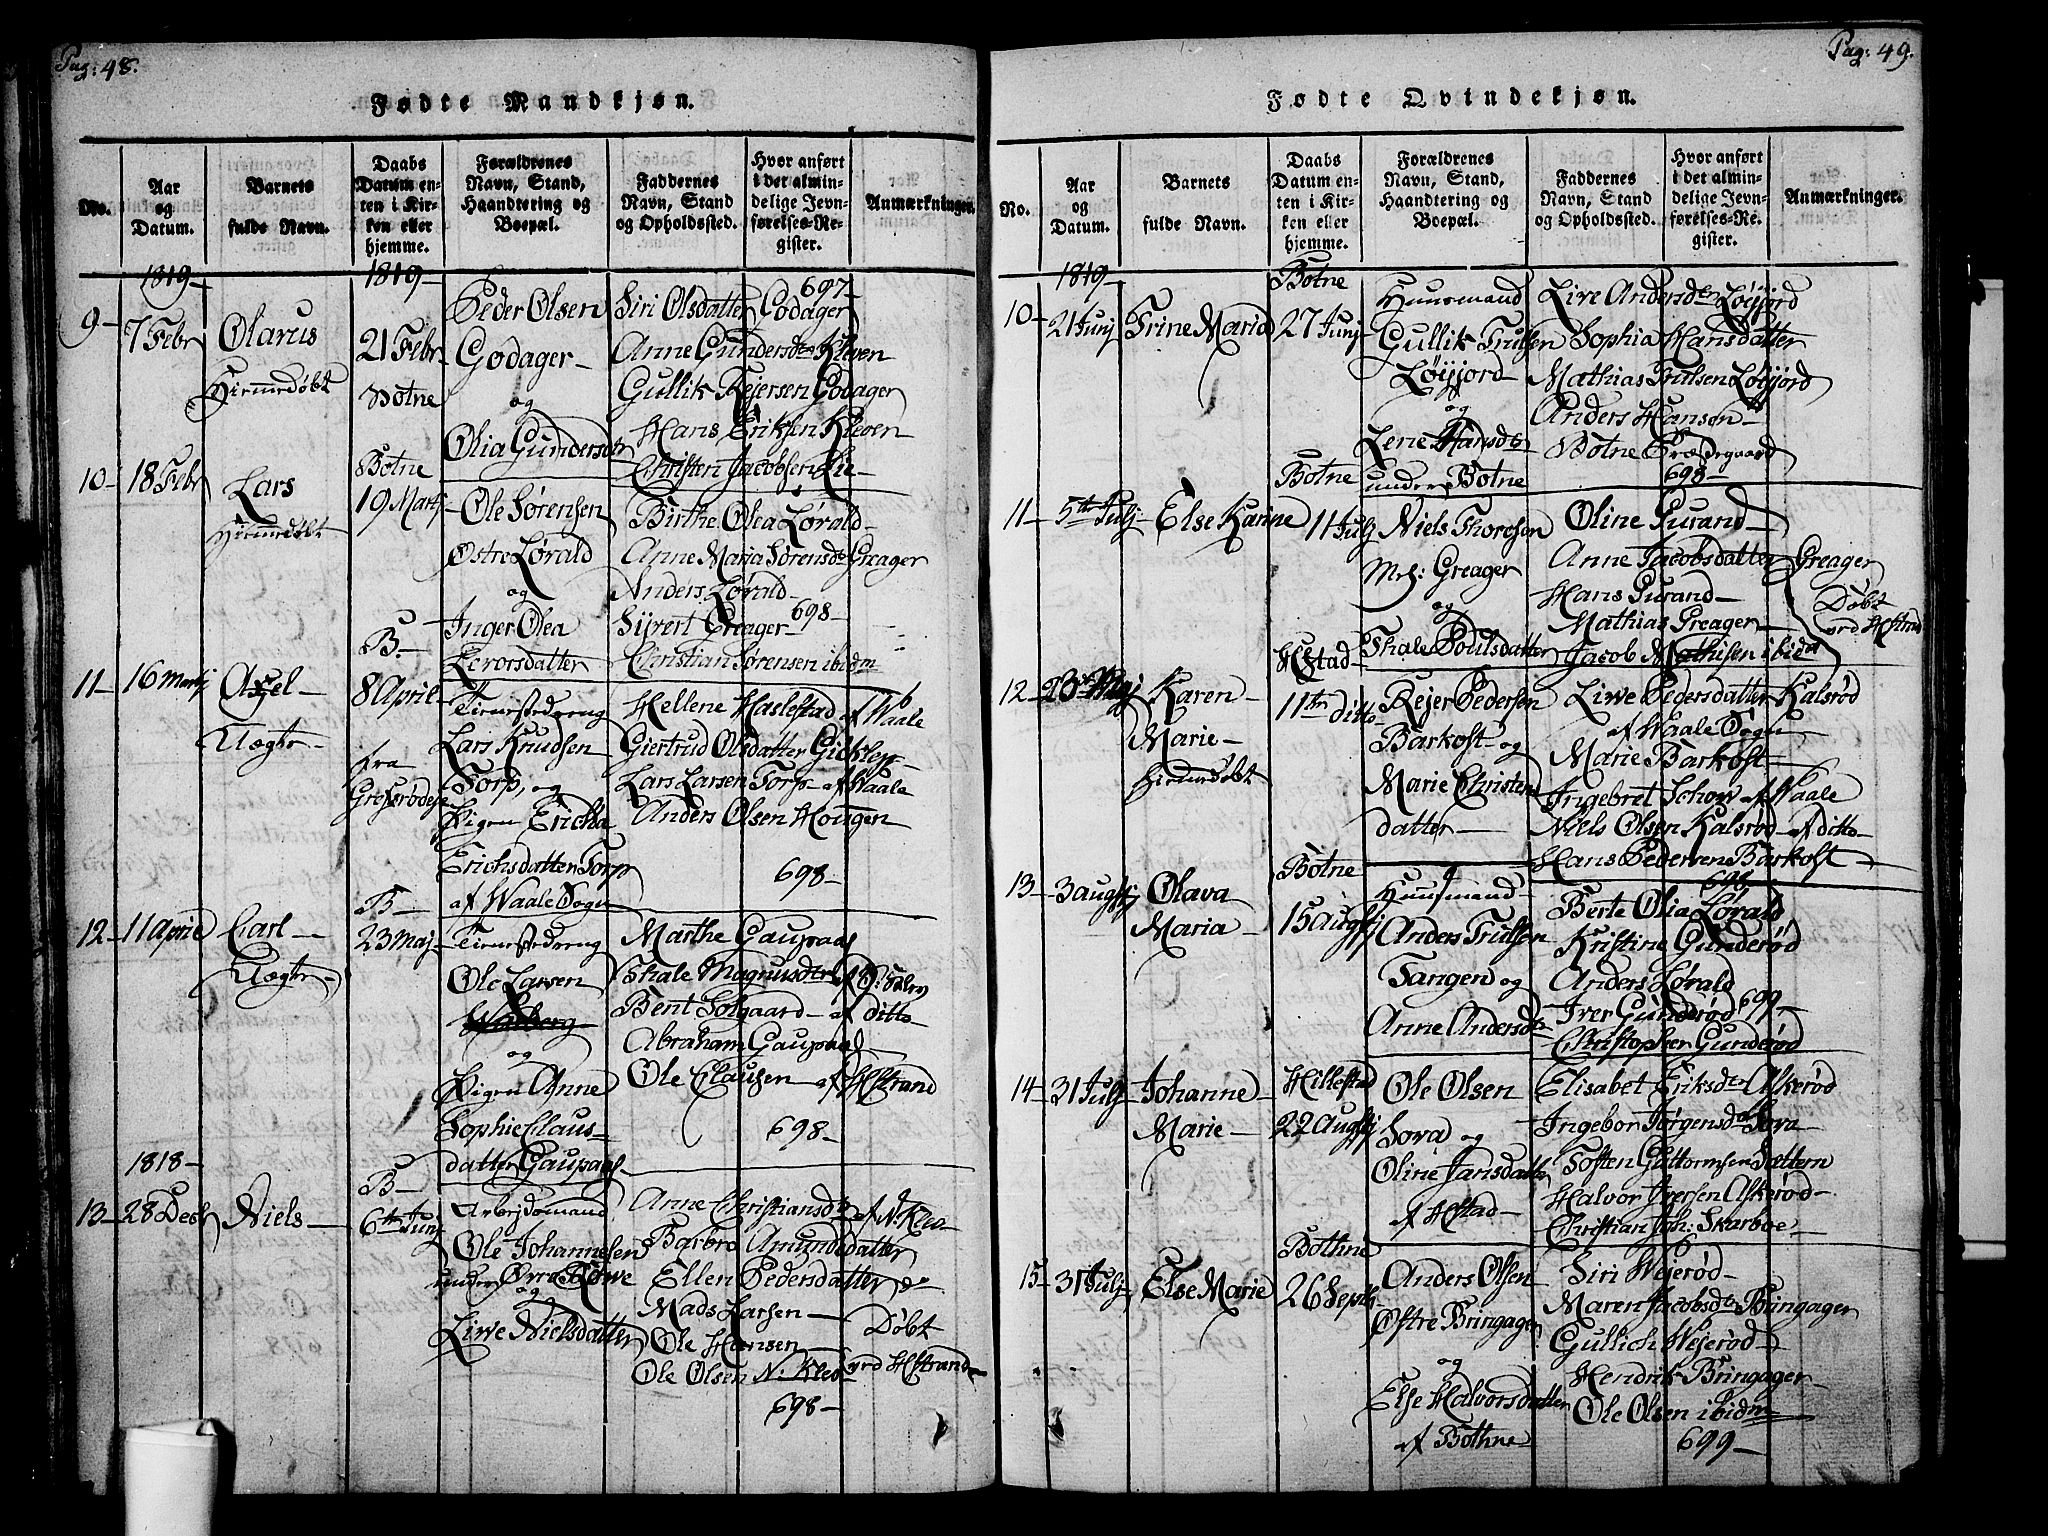 Pag: 48.
Fødte Mandkjøn.
No.
Aar og Datum.
Barnets fulde Navn.
Daabs Datum enten i Kirken eller hjemme.
Forældrenes Navn, Stand, Haandtering og Boepæl.
Faddernes Navn, Stand og Opholdssted.
Hvor anført i det almindelige Jevnførelses-Register.
Anmærkninger.
1819
9
7 Febr
Olarus
Hiemmedøbt
1819
21 Febr
Botne
Peder Olsen
Godager
og
Olia Gundersdtr
Siri Olsdatter Godager
Anne Gundersdtr Kleven
Gullik Rejersen Godager
Hans Eriksen Kleven
Christen Jacobsen Lie
697
10
18 Febr
Lars
Hiemmedøbt
Botne
19 Marts
Ole Sørensen
Østre Lørald
og
Inger Olea
Birthe Olea Lørald
Anne Maria Sørensdtr Greager
Anders Lørald
Sivert Greager
Christian Sørensen ibidm
698
11
16 Martj
Axel
Uægte
B.
8 April
fra
Tienestedreng
Lars Knudsen
Torp, og
Pigen Ericha
Erichsdatter Torp
af Waale Sogn
Hellene Haslestad af Waale
Giertrud Olsdatter Gicklep
Lars Larsen Torp af Waale
Anders Olsen Hougen
698
12
11 April
Carl
Uægte
B
23 Maj
Tienestedreng
Ole Larsen
og
Pigen Anne
Sophie Claus-
datter Gaupaas
Marthe Gaupaas
Skale Magnusdtr
Bent Solgaard af ditto
Abraham Gaupaas
Ole Clausen af Hstrand
698
1818
13
28 Decb
Niels
B
6th Junj
Arbejdsmand
Ole Johannesen
under
og
Live Nielsdatter
Anne Christiansdtr
Barbro Amundsdatter
Ellen Pedersdatter do
Mads Larsen
Ole Hansen
Ole Olsen
698
Døbt
ved Hstrand
Pag: 49.
Fødte Qvindekjøn.
No.
Aar og Datum.
Barnets fulde Navn.
Daabs Datum enten i Kirken eller hjemme.
Forældrenes Navn, Stand, Haandtering og Boepæl.
Faddernes Navn, Stand og Opholdssted.
Hvor anført i det almindelige Jevnførelses-Register.
Anmærkninger.
1819
10
21 Junj
Trine Maria
Botne
27 Junj
Huusmand
Gullik Trulsen
Løyjord
og
Lene Hansdtr
under Botne
Live Andersdtr Løyjord
Sophia Hansdatter
Mathias Trulsen Løyjord
Anders Hansen
Botne Præstegaard
698
11
5th Julj
Else Karine
Botne
11 Julj
Niels Thoresen
Greager
og
Skale Poulsdatter
Oline
Anne Jacobsdatter Greager
Hans
Mathias Greager
Jacob Mathisen ibid
Døbt
ved Hstrand
12
Karen
Marie
Hiemmedøbt
Hstad
11th ditto
Rejer Pedersen
Barkost og
Marie Christen
datter
Live Pedersdatter Kalsrød
af Waale Sogn
Marie Barkost
Ingebret Schow af Waale
Niels Olsen Kalsrød af ditto
Hans Pedersen Barkost
698
13
3 Augstj
Olava
Maria
Botne
15 Augstj
Huusmand
Anders Trulsen
Tangen og
Anne Andersdtr
Berte Olia Lørald
Kristine Gunderød
Anders Lørald
Iver Gunderød
Christopher Gunderød
699
14
31 Julj
Johanne
Marie
Hillestad
22 Augstj
Ole Olsen
Sora og
Oline Jansdatter
af Hstad
Elisabet Eriksdtr Askerød
Ingebor Jørgensdtr Sora
Tosten Guttormsen Sættern
Halvor Iversen Askerød
Christian Joh: Skarboe
15
31 Julj
Else Marie
Bothne
26 Septb
Anders Olsen
Østre Bringager
og
Else Halvorsdatter
af Bothne
Siri Wejerød
Maren Jacobsdtr Bringager
Gullich Wejerød
Hendrik Bringager
Ole Olsen ibidm
699